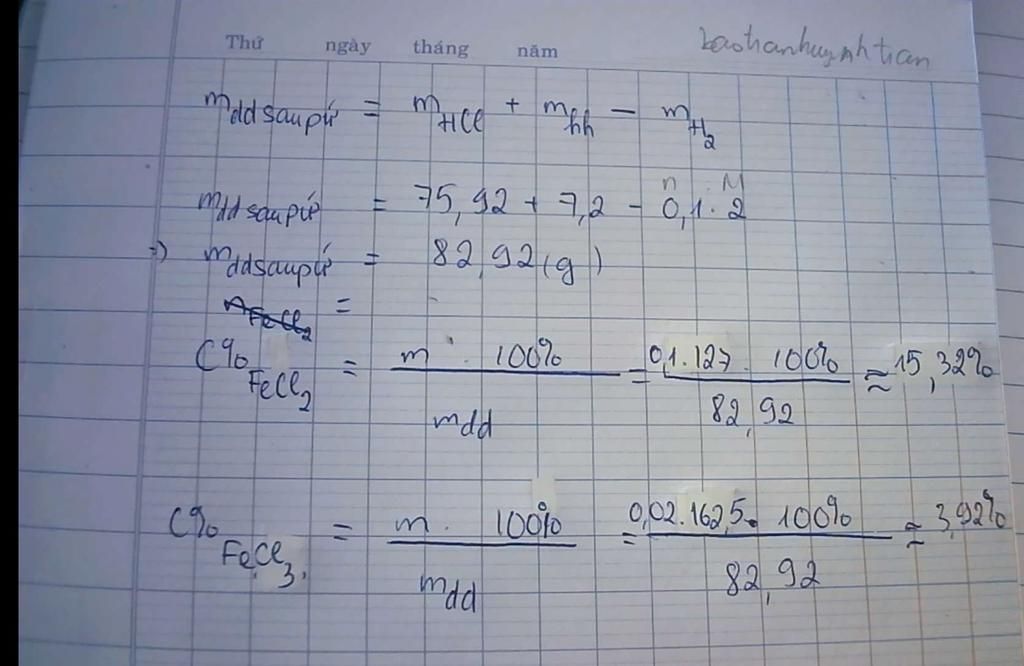 Thứ ngày tháng năm
baohanhuynhtran
mddsaupứ = mHCl + mhh - mH2
n M
mddsaupứ = 75,92 + 7,2 - 0,1 . 2
=) mddsaupứ = 82,92 (g)
nFeCl2 =
C%FeCl2 = m . 100% / mdd = 0,1.127 . 100% / 82,92 ≈ 15,32%
C%FeCl3 = m . 100% / mdd = 0,02.162,5 . 100% / 82,92 ≈ 3,92%